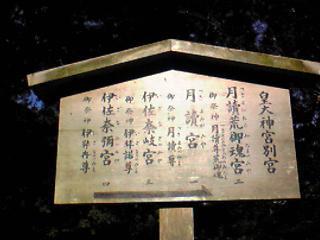 皇大神宮別宮
月讀荒御魂宮 二
御祭神 月讀尊荒御魂
月讀宮 一
御祭神 月讀尊
伊佐奈岐宮 三
御祭神 伊弉諾尊
伊佐奈彌宮 四
御祭神 伊弉冉尊